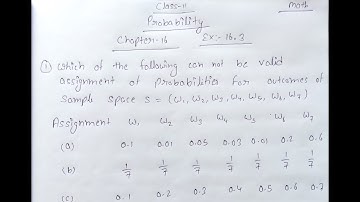 Class-11
Math
Probability
Chapter-16
Ex:- 16.3
① Which of the following can not be valid
assignment of probabilities for outcomes of
sample space s = (ω₁, ω₂, ω₃, ω₄, ω₅, ω₆, ω₇)
Assignment ω₁ ω₂ ω₃ ω₄ ω₅ ω₆ ω₇
(a) 0.1 0.01 0.05 0.03 0.01 0.2 0.6
(b) 1/7 1/7 1/7 1/7 1/7 1/7 1/7
(c) 0.1 0.2 0.3 0.4 0.5 0.6 0.7